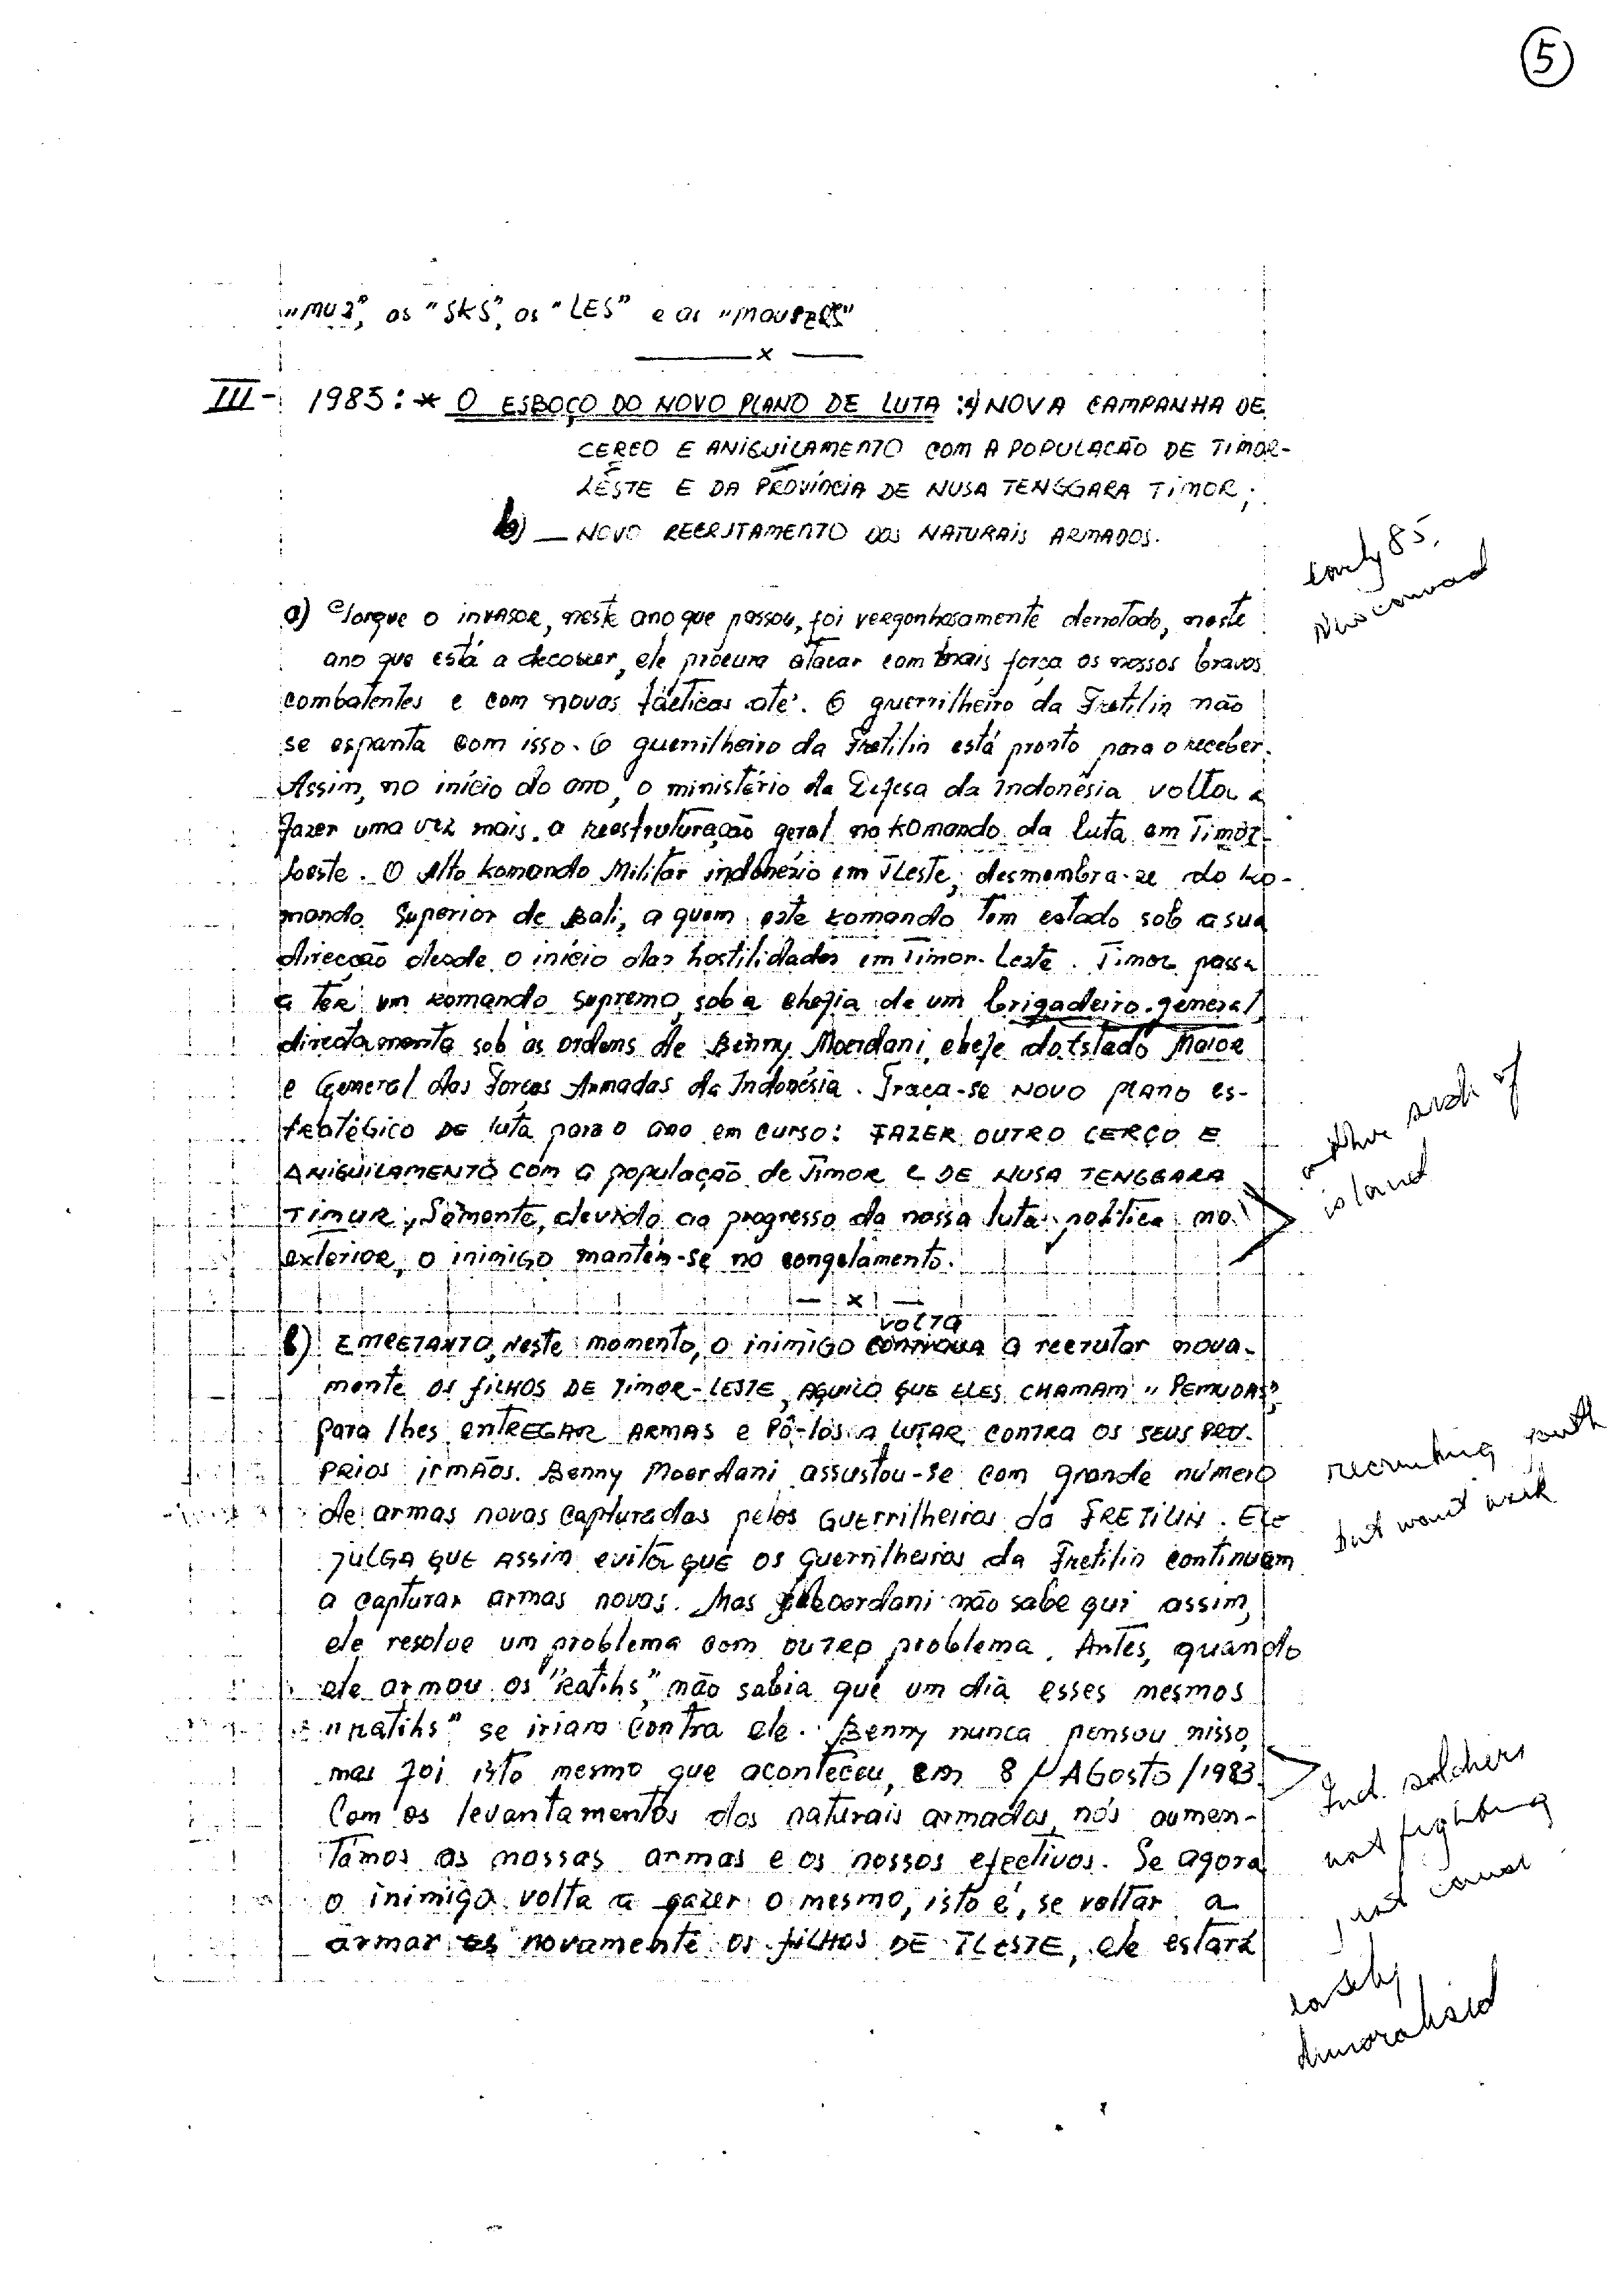 5
"MU2", os "SKS", os "LES" e as "MOUSERS"
— x —
III - 1985: * O ESBOÇO DO NOVO PLANO DE LUTA : a) NOVA CAMPANHA DE
CERCO E ANIGUILAMENTO COM A POPULAÇÃO DE TIMOR-
LESTE E DA PROVÍNCIA DE NUSA TENGGARA TIMOR;
b) — NOVO RECRUTAMENTO DOS NATURAIS ARMADOS.
early 85,
New
a) Porque o invasor, neste ano que passou, foi vergonhosamente derrotado, neste
ano que está a decorrer, ele procura atacar com mais força os nossos bravos
combatentes e com novas tácticas até. O guerrilheiro da Fretilin não
se espanta com isso. O guerrilheiro da Fretilin está pronto para o receber.
Assim, no início do ano, o ministério da Defesa da Indonésia volta a
fazer uma vez mais a reestruturação geral no Komando da luta em Timor-
Leste. O Alto Komando Militar indonésio em TLeste, desmembra-se do Ko-
mando Superior de Bali, a quem este Komando tem estado sob a sua
direcção desde o início das hostilidades em Timor-Leste. Timor passa
a TER um Komando Supremo sob a chefia de um brigadeiro-general
directamente sob as ordens de Benny Moerdani, chefe do Estado Maior
e General das Forças Armadas da Indonésia. Traça-se NOVO PLANO es-
tratégico DE luta para o ano em curso: FAZER OUTRO CERCO E
ANIGUILAMENTO COM a população de Timor e DE NUSA TENGGARA
TIMUR, Sòmente, devido ao progresso da nossa luta política no
exterior, o inimigo mantém-se no congelamento.
other side of
island
— x —
volta
b) EMRETANTO, neste momento, o inimigo a recrutar nova-
mente os filhos DE Timor-LESTE, AQUILO QUE ELES CHAMAM "PEMUDAS",
para lhes entREGAR ARMAS e Pô-los a LUTAR CONTRA OS SEUS PRO-
PRIOS IRMÃOS. Benny Moerdani assustou-se com grande número
de armas novas capturadas pelos Guerrilheiros da FRETILIN. Ele
JULGA QUE ASSIM evita que os guerrilheiros da Fretilin continuem
a capturar armas novas. Mas Moerdani não sabe qui assim,
ele resolve um problema com OUTRO problema. Antes, quando
ele armou os "Ratihs", não sabia que um dia esses mesmos
"Ratihs" se iriam contra ele. Benny nunca pensou nisso,
mas foi isto mesmo que aconteceu, em 8 / AGosto /1983.
Com os levantamentos dos naturais armados, nós aumen-
támos as nossas armas e os nossos efectivos. Se agora
o inimigo volta a fazer o mesmo, isto é, se voltar a
armar novamente os filhos DE TLESTE, ele estará
recruiting youth
but won't work
Ind. soldiers
not fighting
just cause
easily
demoralised